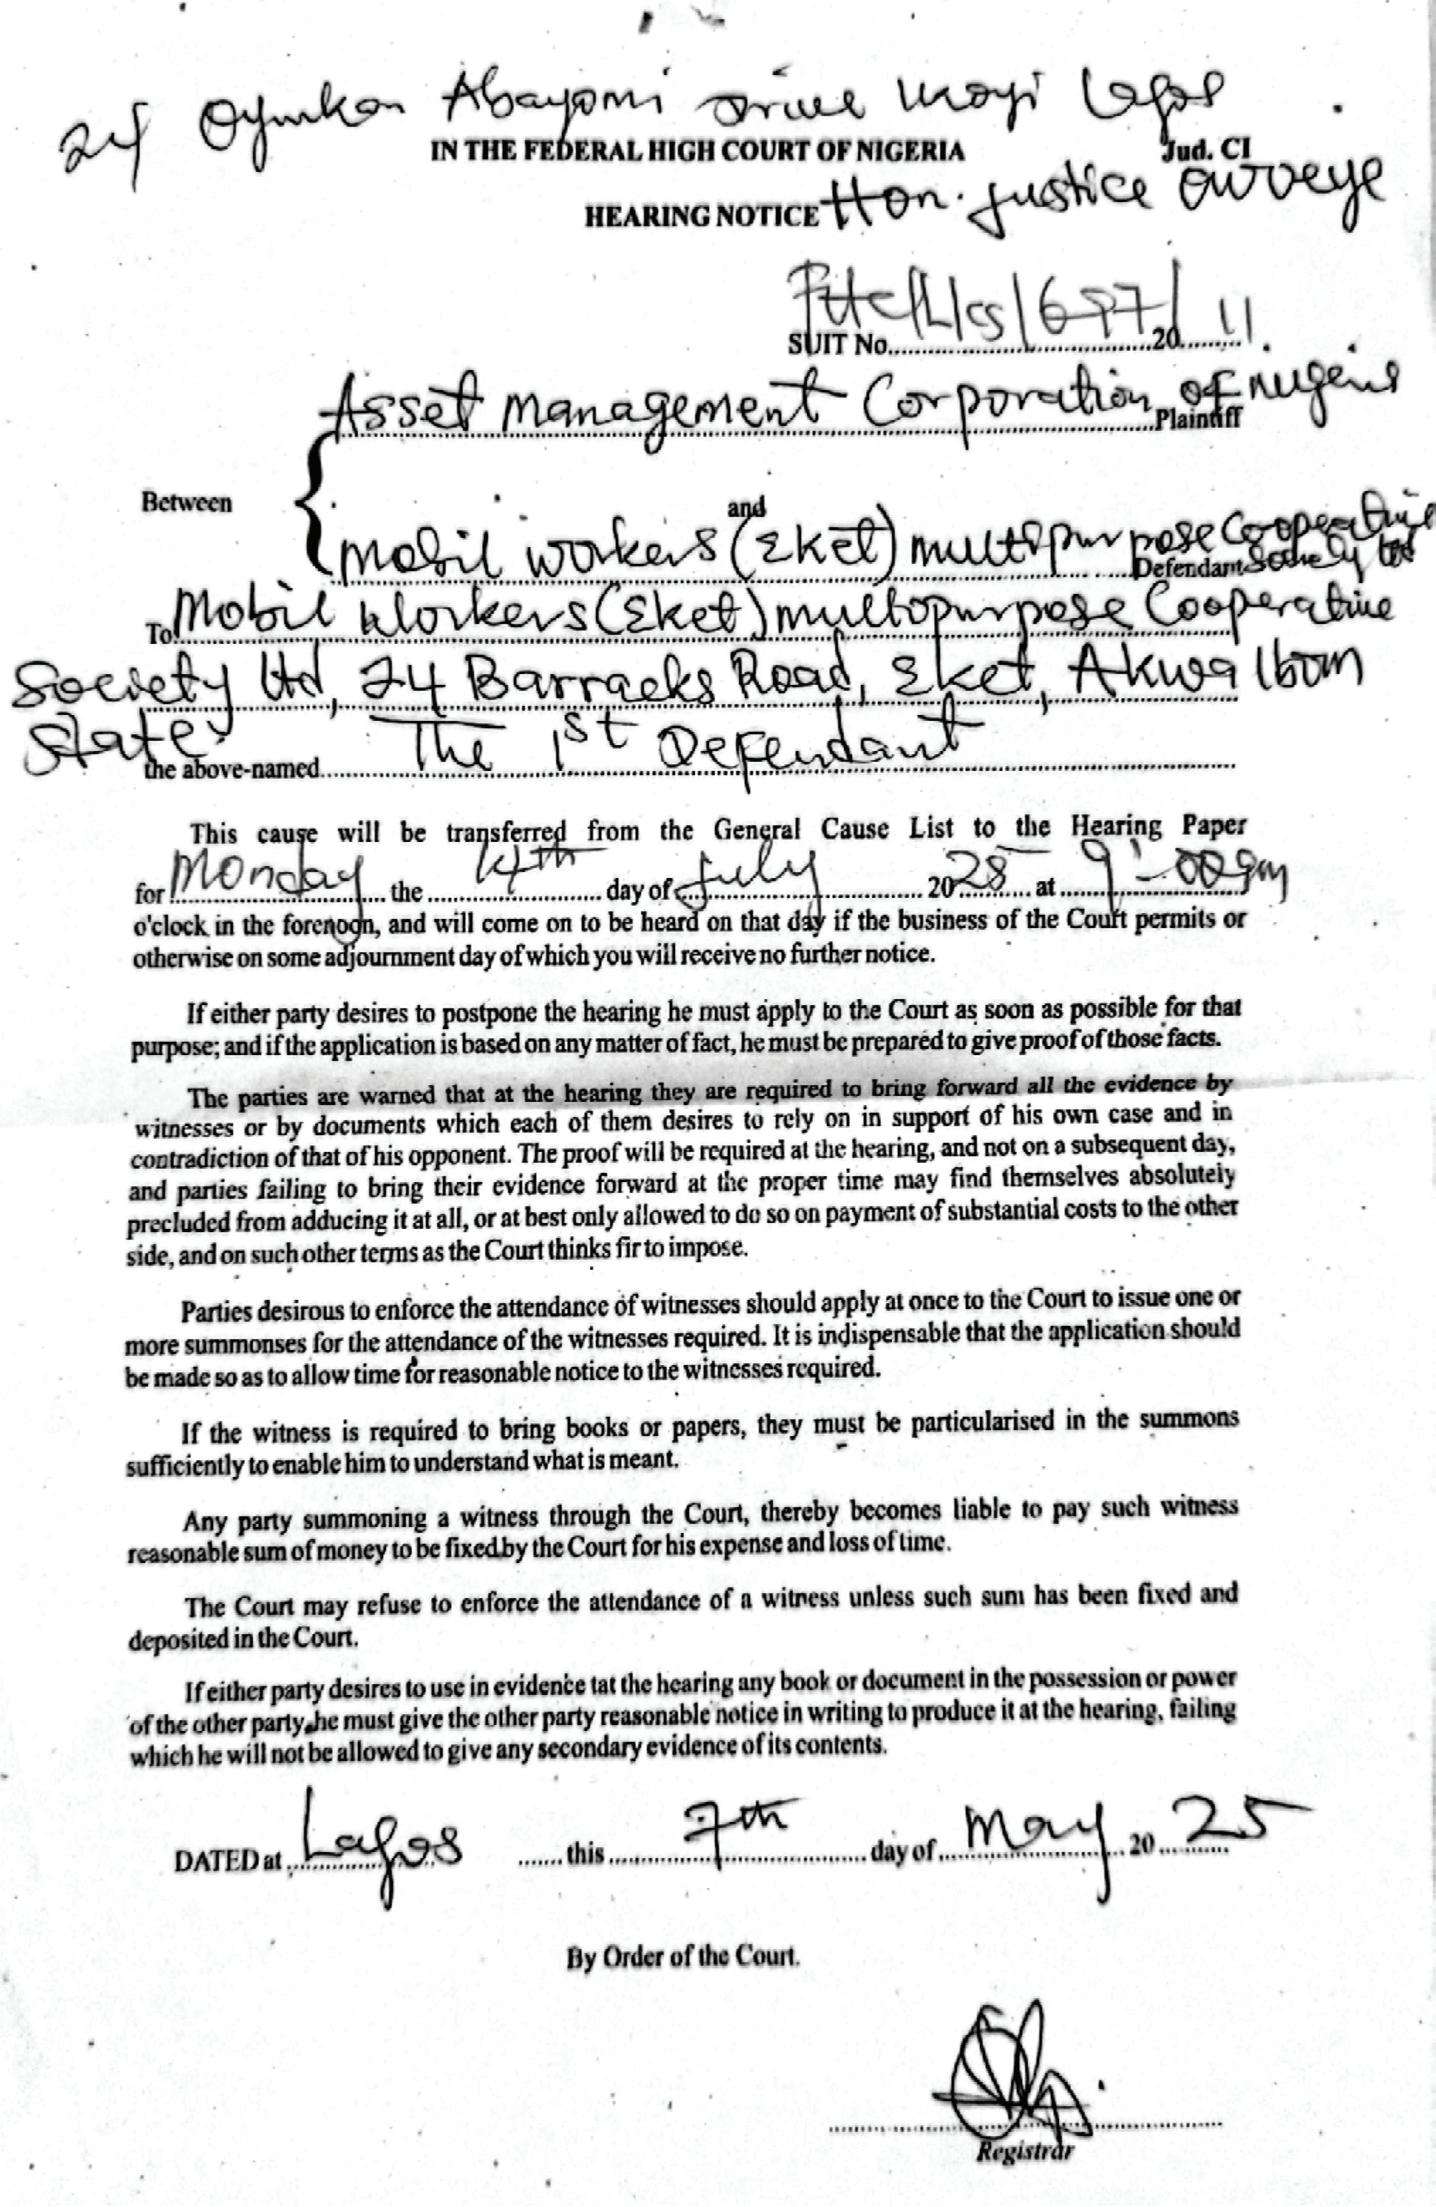 24 Oyinkan Abayomi Drive Ikoyi Lagos
IN THE FEDERAL HIGH COURT OF NIGERIA Jud. CI
HEARING NOTICE Hon. Justice Owoeye
SUIT No. FHC/L/CS/697/2011.
Asset Management Corporation of Nigeria
Plaintiff
Between
and
Mobil Workers (Eket) Multipurpose Cooperative
Defendant Society Ltd
To Mobil Workers (Eket) Multopurpose Cooperative
Society Ltd, 24 Barracks Road, Eket, Akwa Ibom
State
the above-named The 1st Defendant
This cause will be transferred from the General Cause List to the Hearing Paper
for Monday the 14th day of July 2025 at 9:00am
o'clock in the forenoon, and will come on to be heard on that day if the business of the Court permits or
otherwise on some adjournment day of which you will receive no further notice.
If either party desires to postpone the hearing he must apply to the Court as soon as possible for that
purpose; and if the application is based on any matter of fact, he must be prepared to give proof of those facts.
The parties are warned that at the hearing they are required to bring forward all the evidence by
witnesses or by documents which each of them desires to rely on in support of his own case and in
contradiction of that of his opponent. The proof will be required at the hearing, and not on a subsequent day,
and parties failing to bring their evidence forward at the proper time may find themselves absolutely
precluded from adducing it at all, or at best only allowed to do so on payment of substantial costs to the other
side, and on such other terms as the Court thinks fir to impose.
Parties desirous to enforce the attendance of witnesses should apply at once to the Court to issue one or
more summonses for the attendance of the witnesses required. It is indispensable that the application should
be made so as to allow time for reasonable notice to the witnesses required.
If the witness is required to bring books or papers, they must be particularised in the summons
sufficiently to enable him to understand what is meant.
Any party summoning a witness through the Court, thereby becomes liable to pay such witness
reasonable sum of money to be fixed by the Court for his expense and loss of time.
The Court may refuse to enforce the attendance of a witness unless such sum has been fixed and
deposited in the Court.
If either party desires to use in evidence tat the hearing any book or document in the possession or power
of the other party, he must give the other party reasonable notice in writing to produce it at the hearing, failing
which he will not be allowed to give any secondary evidence of its contents.
DATED at Lagos this 7th day of May 2025
By Order of the Court.
Registrar